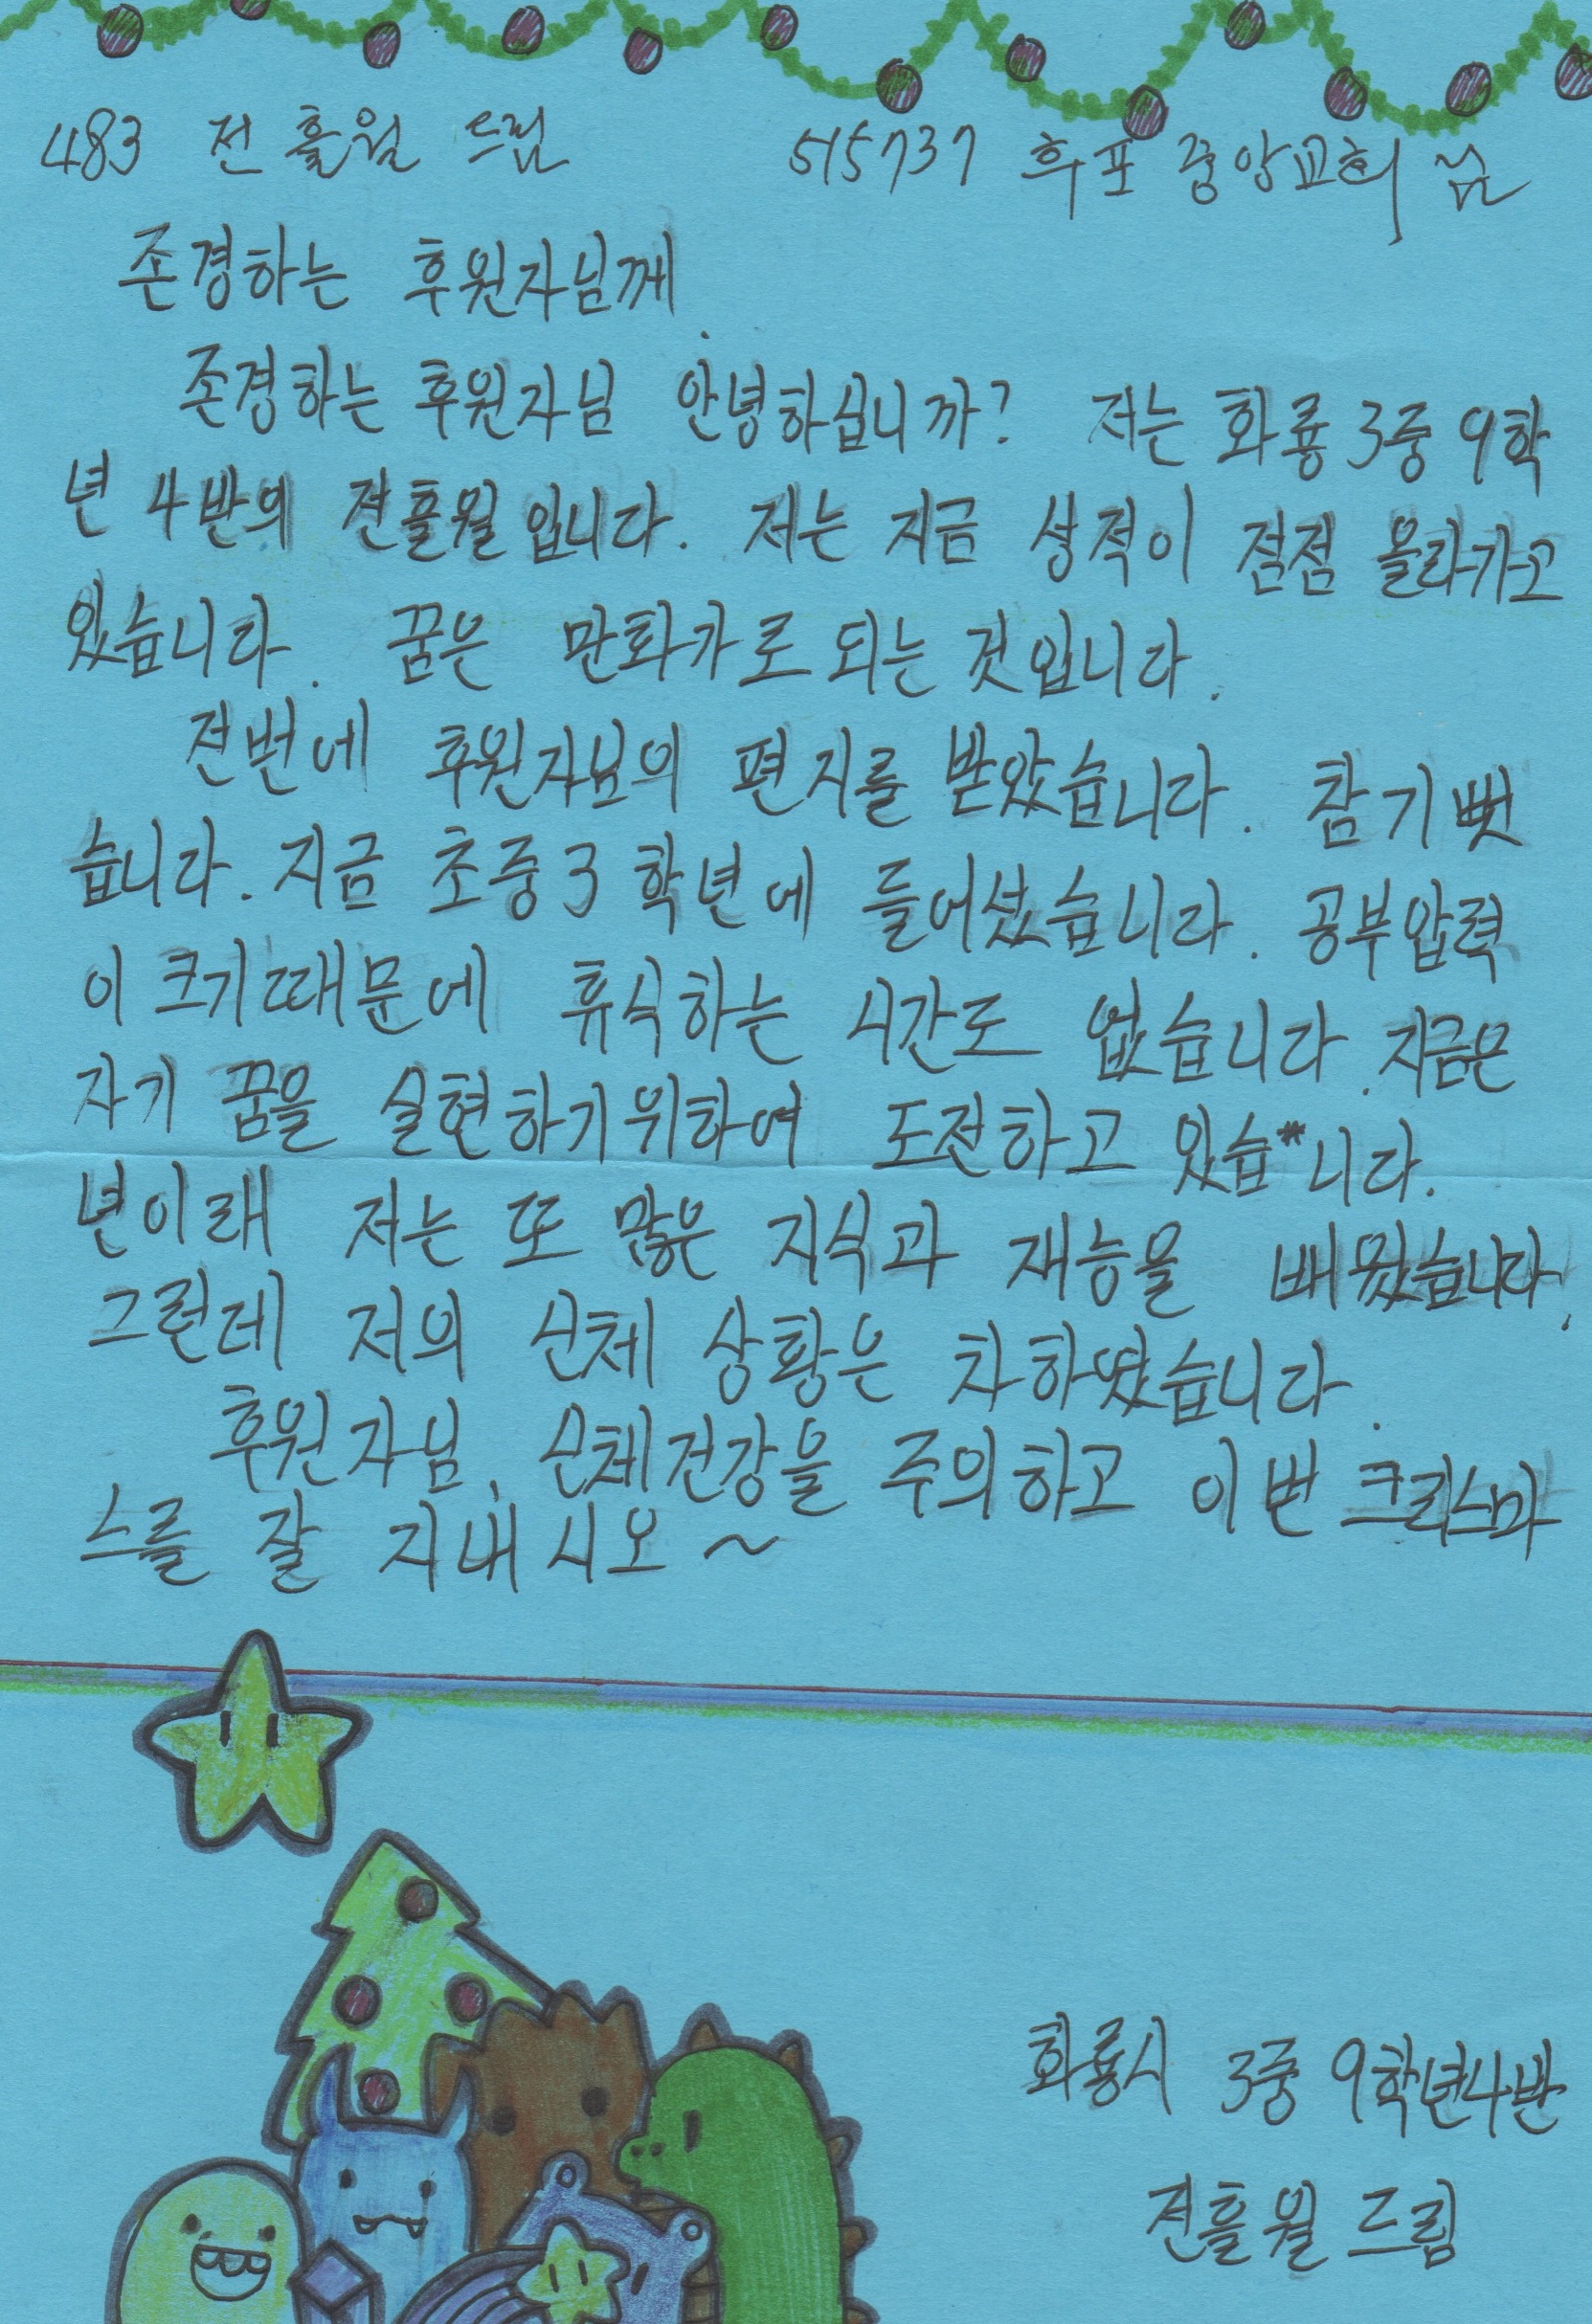 483 전흘월 드림
515737 후포중앙교회 님
존경하는 후원자님께.
존경하는 후원자님 안녕하십니까? 저는 화룡3중 9학
년 4반의 전흘월입니다. 저는 지금 성적이 점점 올라가고
있습니다. 꿈은 만화가로 되는 것입니다.
전번에 후원자님의 편지를 받았습니다. 참 기뻣
습니다. 지금 초중3학년에 들어섰습니다. 공부압력
이 크기때문에 휴식하는 시간도 없습니다. 지금은
자기 꿈을 실현하기위하여 도전하고 있습*니다.
년이래 저는 또 많은 지식과 재능을 배웠습니다.
그런데 저의 신체 상황은 차하였습니다.
후원자님, 신체건강을 주의하고 이번 크리스마
스를 잘 지내시오~
화룡시 3중 9학년4반
전흘월 드림